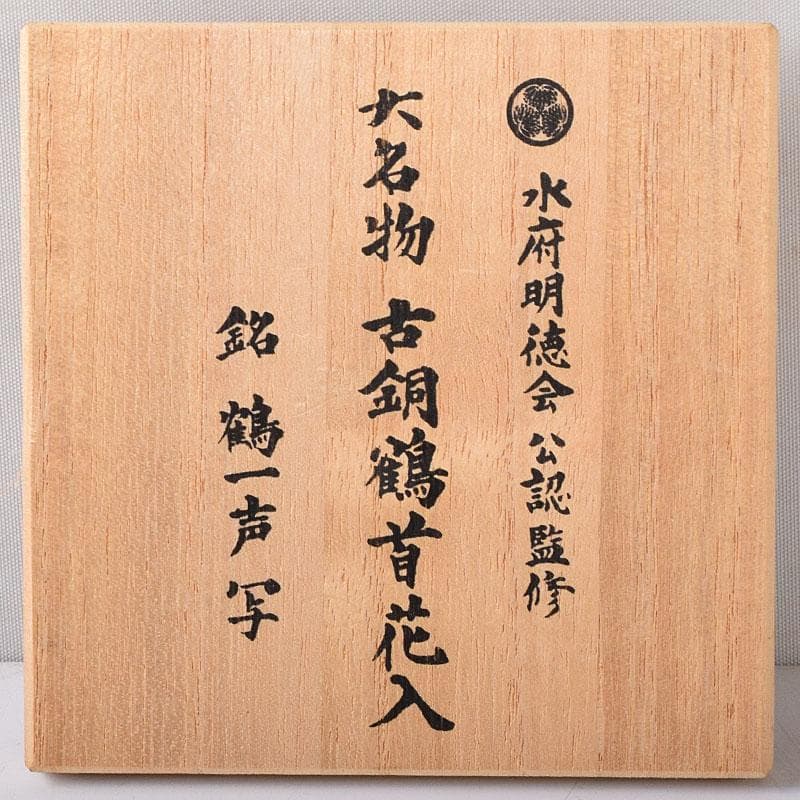 水府明徳会 公認監修
大名物 古銅鶴首花入
銘 鶴一声 写